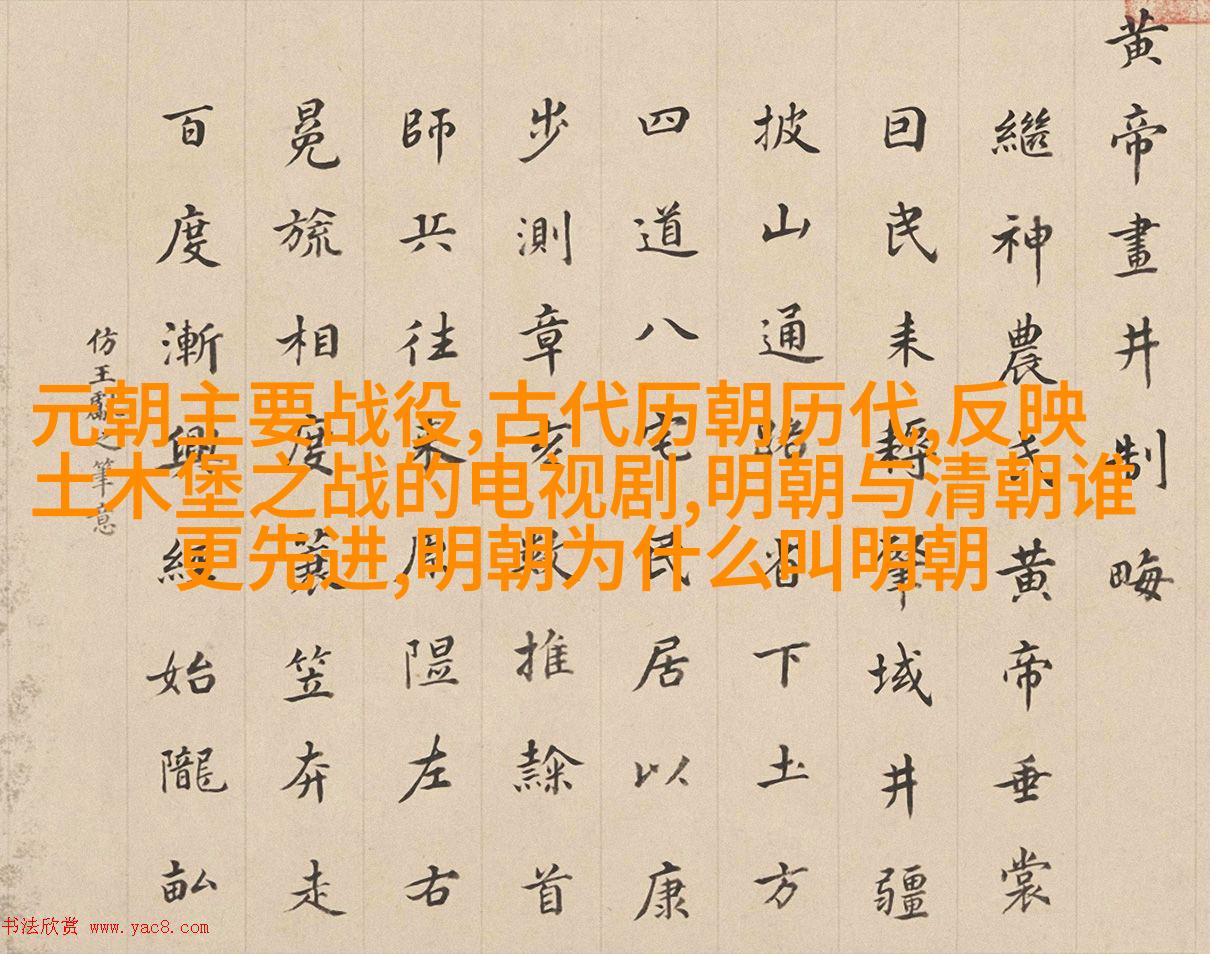 黄帝畫井制畮
繼神農氏黄帝垂裳
囙民耒耨肇域井疆
披山通路省下土方
四道八宅民居以康
步測章亥數推隸首
師兵往来原隰左右
冕旒相度蓑笠奔走
百度漸興經始隴畝
仿王獻之筆意
元朝主要战役,古代历朝历代,反映
土木堡之战的电视剧,明朝与清朝谁
更先进,明朝为什么叫明朝
书法欣赏 www.yac8.com